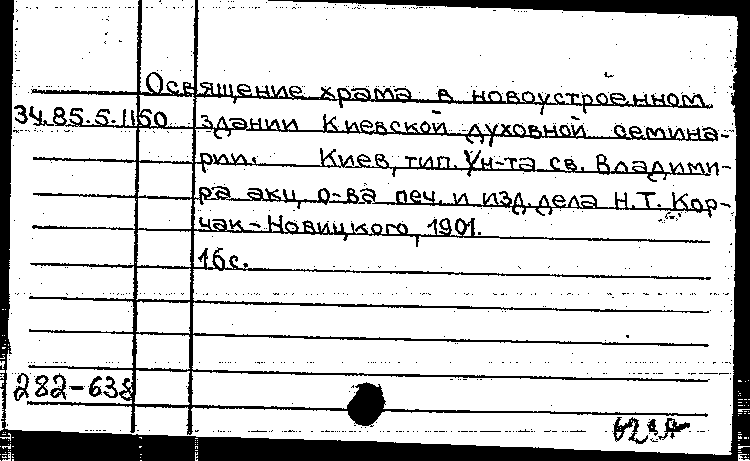 Освящение храма в новоустроенном
34.85.5.1150 здании Киевской духовной семина-
рии. Киев, тип. Ун-та св. Владими-
ра акц. о-ва печ. и изд. дела Н.Т. Кор-
чак-Новицкого, 1901.
16с.
282-638